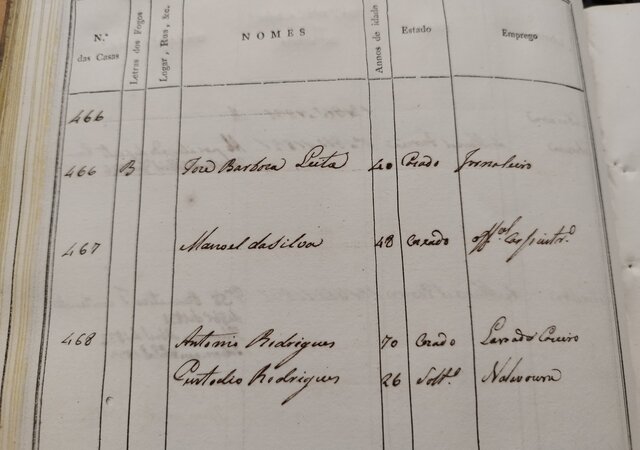 N.º das Casas Letras dos Fogos Lugar, Rua, &c. NOMES Annos de idade Estado Emprego
466
466 B Joze Barboza Leita 40 Cazado Jornaleiro
467 Manoel da Silva 48 Cazado off.al Carpintr.º
468 Antonio Rodrigues 70 Cazado
Custodio Rodrigues 26 Solt.º Na lavoura